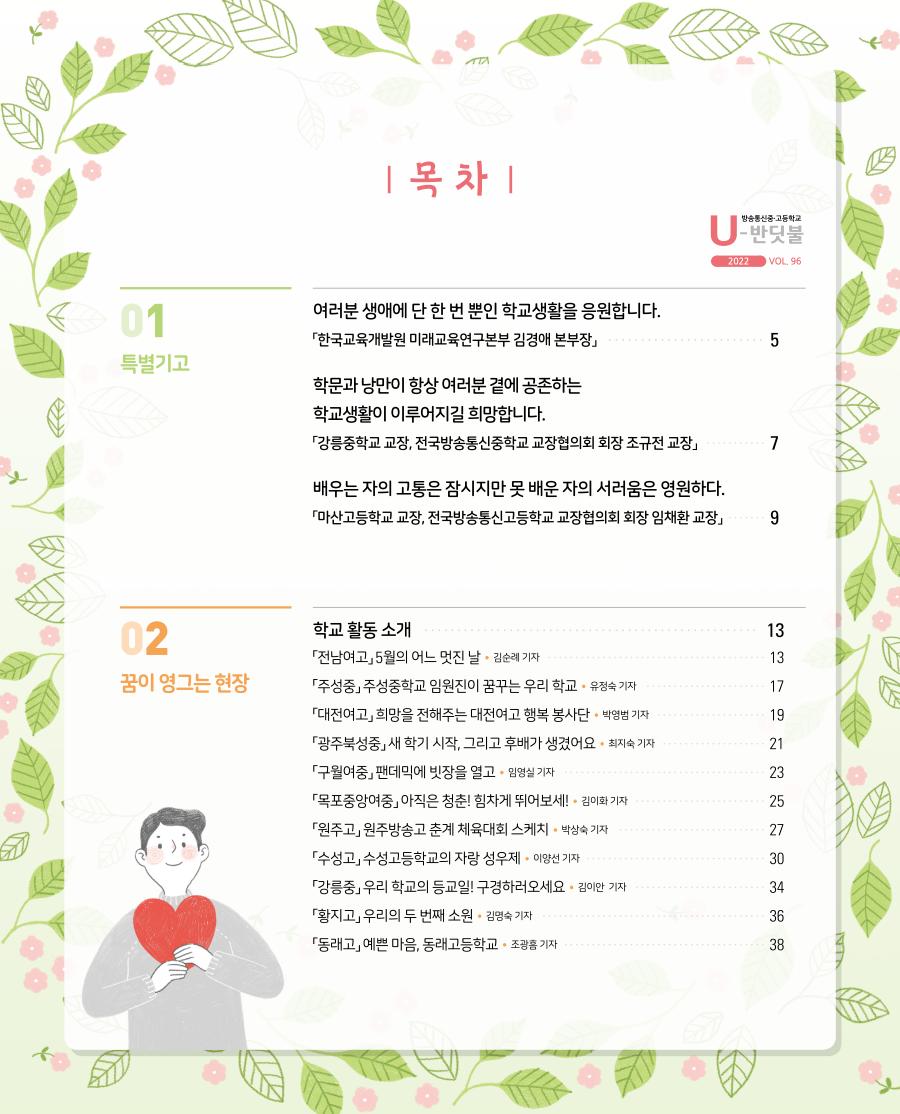 | 목차 |
방송통신중·고등학교
U-반딧불
2022 VOL. 96
01
특별기고
여러분 생애에 단 한 번 뿐인 학교생활을 응원합니다.
「한국교육개발원 미래교육연구본부 김경애 본부장」 5
학문과 낭만이 항상 여러분 곁에 공존하는
학교생활이 이루어지길 희망합니다.
「강릉중학교 교장, 전국방송통신중학교 교장협의회 회장 조규전 교장」 7
배우는 자의 고통은 잠시지만 못 배운 자의 서러움은 영원하다.
「마산고등학교 교장, 전국방송통신고등학교 교장협의회 회장 임채환 교장」 9
02
꿈이 영그는 현장
학교 활동 소개 13
「전남여고」 5월의 어느 멋진 날 • 김순례 기자 13
「주성중」 주성중학교 임원진이 꿈꾸는 우리 학교 • 유정숙 기자 17
「대전여고」 희망을 전해주는 대전여고 행복 봉사단 • 박영범 기자 19
「광주북성중」 새 학기 시작, 그리고 후배가 생겼어요 • 최지숙 기자 21
「구월여중」 팬데믹에 빗장을 열고 • 임영실 기자 23
「목포중앙여중」 아직은 청춘! 힘차게 뛰어보세! • 김이화 기자 25
「원주고」 원주방송고 춘계 체육대회 스케치 • 박상숙 기자 27
「수성고」 수성고등학교의 자랑 성우제 • 이양선 기자 30
「강릉중」 우리 학교의 등교일! 구경하러오세요 • 김이안 기자 34
「황지고」 우리의 두 번째 소원 • 김명숙 기자 36
「동래고」 예쁜 마음, 동래고등학교 • 조광흠 기자 38